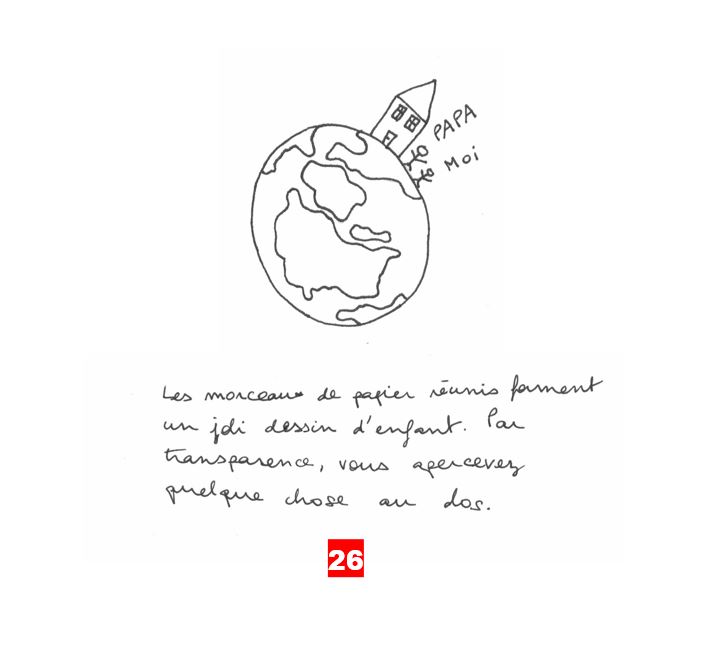 PAPA
Moi
Les morceaux de papier réunis forment
un joli dessin d'enfant. Par
transparence, vous apercevez
quelque chose au dos.
26